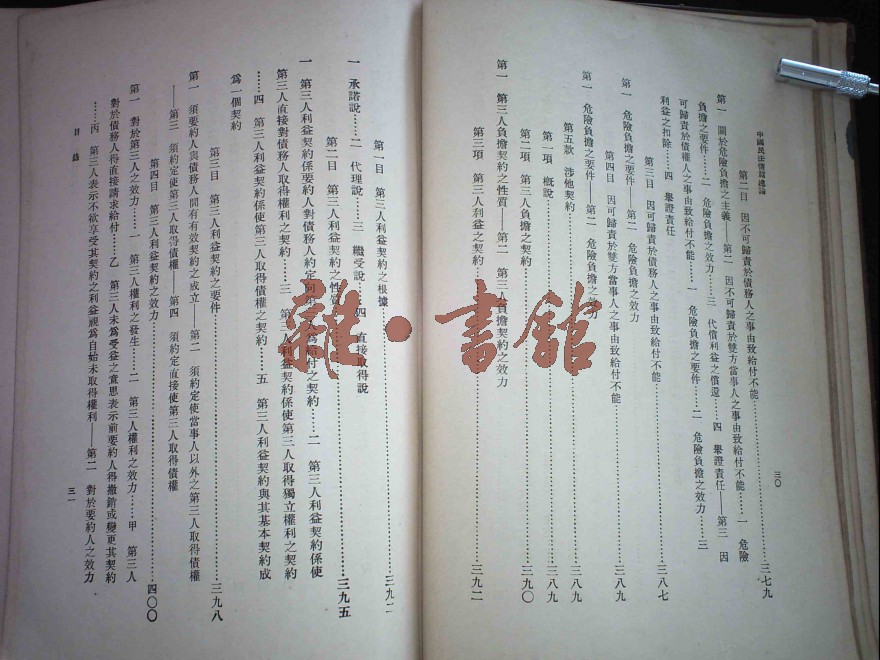 中國民法債編總論
三〇
第二目 因不可歸責於債務人之事由致給付不能……三七九
第一 關於危險負擔之主義——第二 因不可歸責於雙方當事人之事由致給付不能……一 危險
負擔之要件……二 危險負擔之效力……三 代償利益之償還……四 舉證責任——第三 因
可歸責於債權人之事由致給付不能……一 危險負擔之要件……二 危險負擔之效力……三
利益之扣除……四 舉證責任
第三目 因可歸責於債務人之事由致給付不能……三八七
第一 危險負擔之要件——第二 危險負擔之效力
第四目 因可歸責於雙方當事人之事由致給付不能……三八九
第一 危險負擔之要件——第二 危險負擔之效力
第五款 涉他契約……三八九
第一項 概說……三八九
第二項 第三人負擔之契約……三九〇
第一 第三人負擔契約之性質——第二 第三人負擔契約之效力
第三項 第三人利益之契約……三九二
第一目 第三人利益契約之根據……三九二
一 承諾說……二 代理說……三 繼受說……四 直接取得說
第二目 第三人利益契約之性質……三九五
一 第三人利益契約係要約人對債務人約定向第三人為給付之契約……二 第三人利益契約係使
第三人直接對債務人取得權利之契約……三 第三人利益契約係使第三人取得獨立權利之契約
……四 第三人利益契約係使第三人取得債權之契約……五 第三人利益契約與其基本契約成
為一個契約
第三目 第三人利益契約之要件……三九八
第一 須要約人與債務人間有有效契約之成立——第二 須約定使當事人以外之第三人取得債權
——第三 須約定使第三人取得債權——第四 須約定直接使第三人取得債權
第四目 第三人利益契約之效力……四〇〇
第一 對於第三人之效力……一 第三人權利之發生……二 第三人權利之效力……甲 第三人
對於債務人得直接請求給付……乙 第三人未為受益之意思表示前要約人得撤銷或變更其契約
……丙 第三人表示不欲享受其契約之利益視為自始未取得權利——第二 對於要約人之效力
目錄
三一
雜·書館